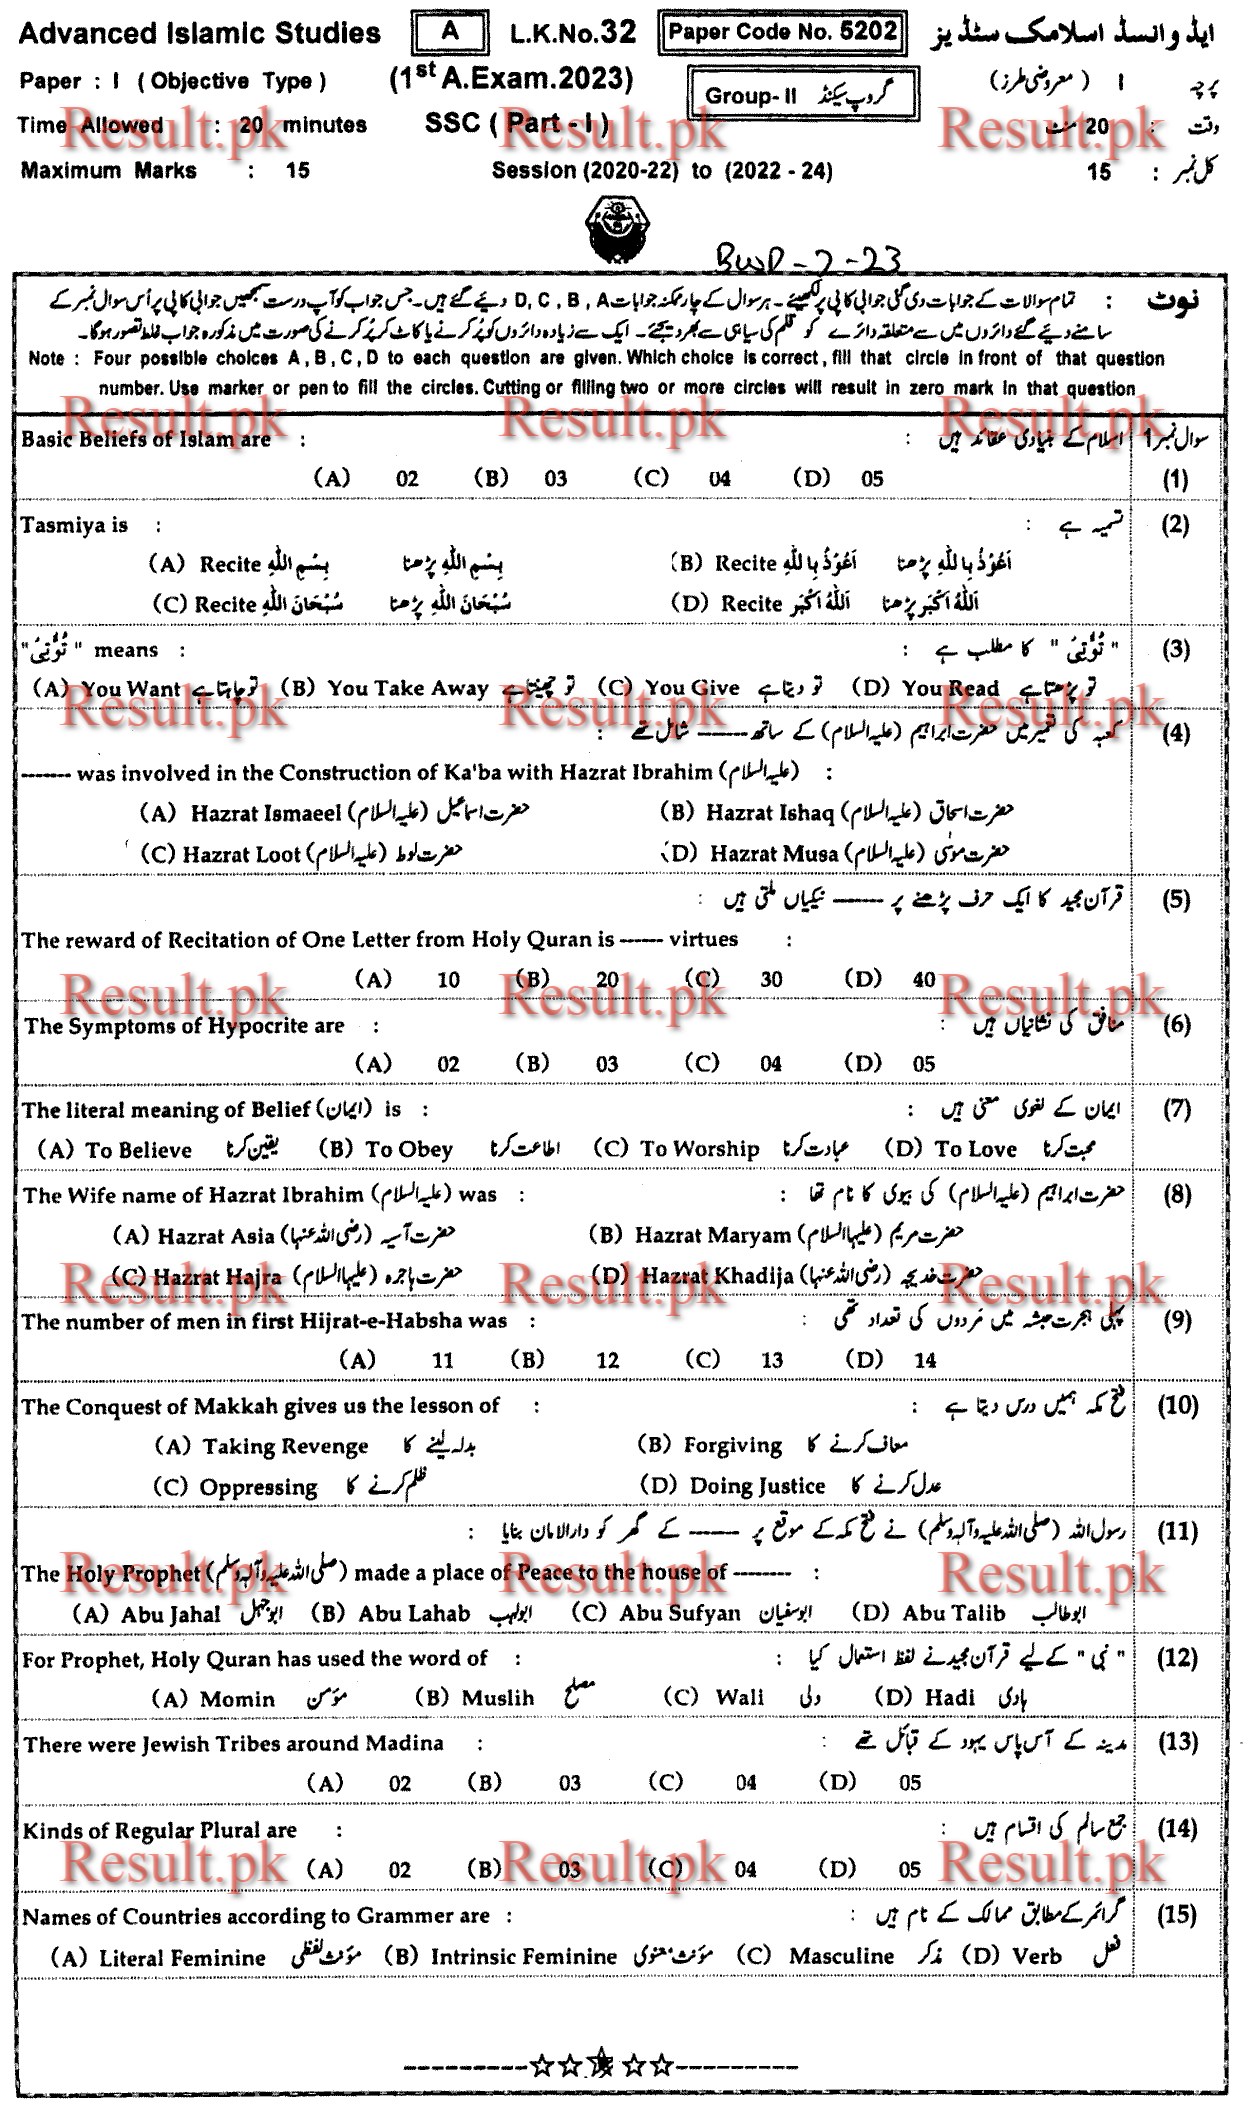 Advanced Islamic Studies A L.K.No.32 Paper Code No. 5202 ایڈوانسڈ اسلامک سٹڈیز
Paper : I ( Objective Type ) (1st A.Exam.2023) Group- II گروپ سیکنڈ پرچہ I ( معروضی طرز)
Time Allowed : 20 minutes SSC ( Part - I ) وقت : 20 منٹ
Maximum Marks : 15 Session (2020-22) to (2022 - 24) کل نمبر : 15
BWP-2-23
نوٹ : تمام سوالات کے جوابات دی گئی جوابی کاپی پر لکھیئے۔ ہر سوال کے چار ممکنہ جوابات D, C, B, A دیئے گئے ہیں۔ جس جواب کو آپ درست سمجھیں جوابی کاپی پر اُس سوال نمبر کے
سامنے دیئے گئے دائروں میں سے متعلقہ دائرے کو قلم کی سیاہی سے بھر دیجئے۔ ایک سے زیادہ دائروں کو پُر کرنے یا کاٹ کر پُر کرنے کی صورت میں مذکورہ جواب غلط تصور ہوگا۔
Note : Four possible choices A , B , C , D to each question are given. Which choice is correct , fill that circle in front of that question
number. Use marker or pen to fill the circles. Cutting or filling two or more circles will result in zero mark in that question
Basic Beliefs of Islam are : اسلام کے بنیادی عقائد ہیں : سوال نمبر 1
(A) 02 (B) 03 (C) 04 (D) 05 (1)
Tasmiya is : تسمیہ ہے : (2)
(A) Recite بِسْمِ اللّٰهِ بِسْمِ اللّٰهِ پڑھنا (B) Recite اَعُوْذُ بِا للّٰهِ اَعُوْذُ بِا للّٰهِ پڑھنا
(C) Recite سُبْحَانَ اللّٰهِ سُبْحَانَ اللّٰهِ پڑھنا (D) Recite اَللّٰهُ اَكْبَر اَللّٰهُ اَكْبَر پڑھنا
"تُؤْتِیْ" means : "تُؤْتِیْ" کا مطلب ہے : (3)
(A) You Want تو چاہتا ہے (B) You Take Away تو چھینتا ہے (C) You Give تو دیتا ہے (D) You Read تو پڑھتا ہے
کعبہ کی تعمیر میں حضرت ابراہیم (علیہ السلام) کے ساتھ ------- شامل تھے : (4)
------- was involved in the Construction of Ka'ba with Hazrat Ibrahim (علیہ السلام) :
(A) Hazrat Ismaeel (علیہ السلام) حضرت اسماعیل (B) Hazrat Ishaq (علیہ السلام) حضرت اسحاق
(C) Hazrat Loot (علیہ السلام) حضرت لوط (D) Hazrat Musa (علیہ السلام) حضرت موسٰی
قرآن مجید کا ایک حرف پڑھنے پر ------- نیکیاں ملتی ہیں : (5)
The reward of Recitation of One Letter from Holy Quran is ------ virtues :
(A) 10 (B) 20 (C) 30 (D) 40
The Symptoms of Hypocrite are : منافق کی نشانیاں ہیں : (6)
(A) 02 (B) 03 (C) 04 (D) 05
The literal meaning of Belief (ایمان) is : ایمان کے لغوی معنی ہیں : (7)
(A) To Believe یقین کرنا (B) To Obey اطاعت کرنا (C) To Worship عبادت کرنا (D) To Love محبت کرنا
The Wife name of Hazrat Ibrahim (علیہ السلام) was : حضرت ابراہیم (علیہ السلام) کی بیوی کا نام تھا : (8)
(A) Hazrat Asia (رضی اللہ عنہا) حضرت آسیہ (B) Hazrat Maryam (علیہا السلام) حضرت مریم
(C) Hazrat Hajra (علیہا السلام) حضرت ہاجرہ (D) Hazrat Khadija (رضی اللہ عنہا) حضرت خدیجہ
The number of men in first Hijrat-e-Habsha was : پہلی ہجرت حبشہ میں مَردوں کی تعداد تھی : (9)
(A) 11 (B) 12 (C) 13 (D) 14
The Conquest of Makkah gives us the lesson of : فتح مکہ ہمیں درس دیتا ہے : (10)
(A) Taking Revenge بدلہ لینے کا (B) Forgiving معاف کرنے کا
(C) Oppressing ظلم کرنے کا (D) Doing Justice عدل کرنے کا
رسول اللہ (صلی اللہ علیہ وآلہ وسلم) نے فتح مکہ کے موقع پر ------- کے گھر کو دارالامان بنایا : (11)
The Holy Prophet (صلی اللہ علیہ وآلہ وسلم) made a place of Peace to the house of -------- :
(A) Abu Jahal ابوجہل (B) Abu Lahab ابولہب (C) Abu Sufyan ابوسفیان (D) Abu Talib ابوطالب
For Prophet, Holy Quran has used the word of : "نبی" کے لیے قرآن مجید نے لفظ استعمال کیا : (12)
(A) Momin مؤمن (B) Muslih مصلح (C) Wali ولی (D) Hadi ہادی
There were Jewish Tribes around Madina : مدینہ کے آس پاس یہود کے قبائل تھے : (13)
(A) 02 (B) 03 (C) 04 (D) 05
Kinds of Regular Plural are : جمع سالم کی اقسام ہیں : (14)
(A) 02 (B) 03 (C) 04 (D) 05
Names of Countries according to Grammer are : گرائمر کے مطابق ممالک کے نام ہیں : (15)
(A) Literal Feminine مؤنث لفظی (B) Intrinsic Feminine مؤنث معنوی (C) Masculine مذکر (D) Verb فعل